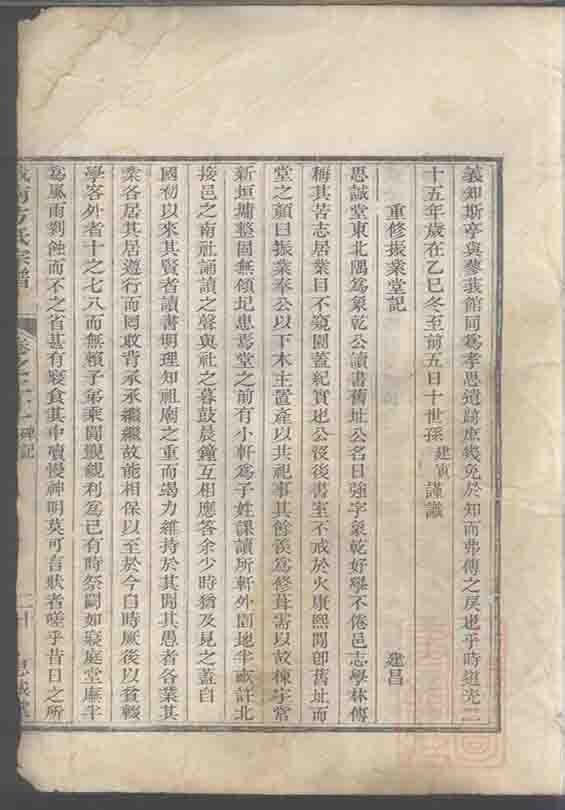 義卹斯亭與蓼莪館同為孝思遺跡庶幾免於知而弗傳之戾也乎時道光二
十五年歲在乙巳冬至前五日十世孫建寅謹識
重修振業堂記
建昌
思誠堂東北隅為象乾公讀書舊址公名日強字象乾好學不倦邑志學林傳
稱其苦志居業目不窺園蓋紀實也公沒後書室不戒於火康熙間卽舊址而
堂之顏曰振業奉公以下木主置產以共祀事其餘羨為修葺需以故棟宇常
新垣墉整固無傾圮患焉堂之前有小軒為子姓課讀所軒外園地半畝許北
接邑之南社誦讀之聲與社之暮鼓晨鐘互相應答余少時猶及見之蓋自
國初以來其賢者讀書明理知祖廟之重而竭力維持於其間其愚者各業其
業各居其居遵行而罔敢背承承繼繼故能相保以至於今自時厥後以貧輟
學客外者十之七八而無賴子弟乘間覬覦利為己有時祭闕如寢庭堂廡半
為風雨剝蝕而不之省甚有寢食其中瀆慢神明莫可言狀者嗟乎昔日之所
南方氏宗譜
卷之三十
碑記
二十
思誠堂